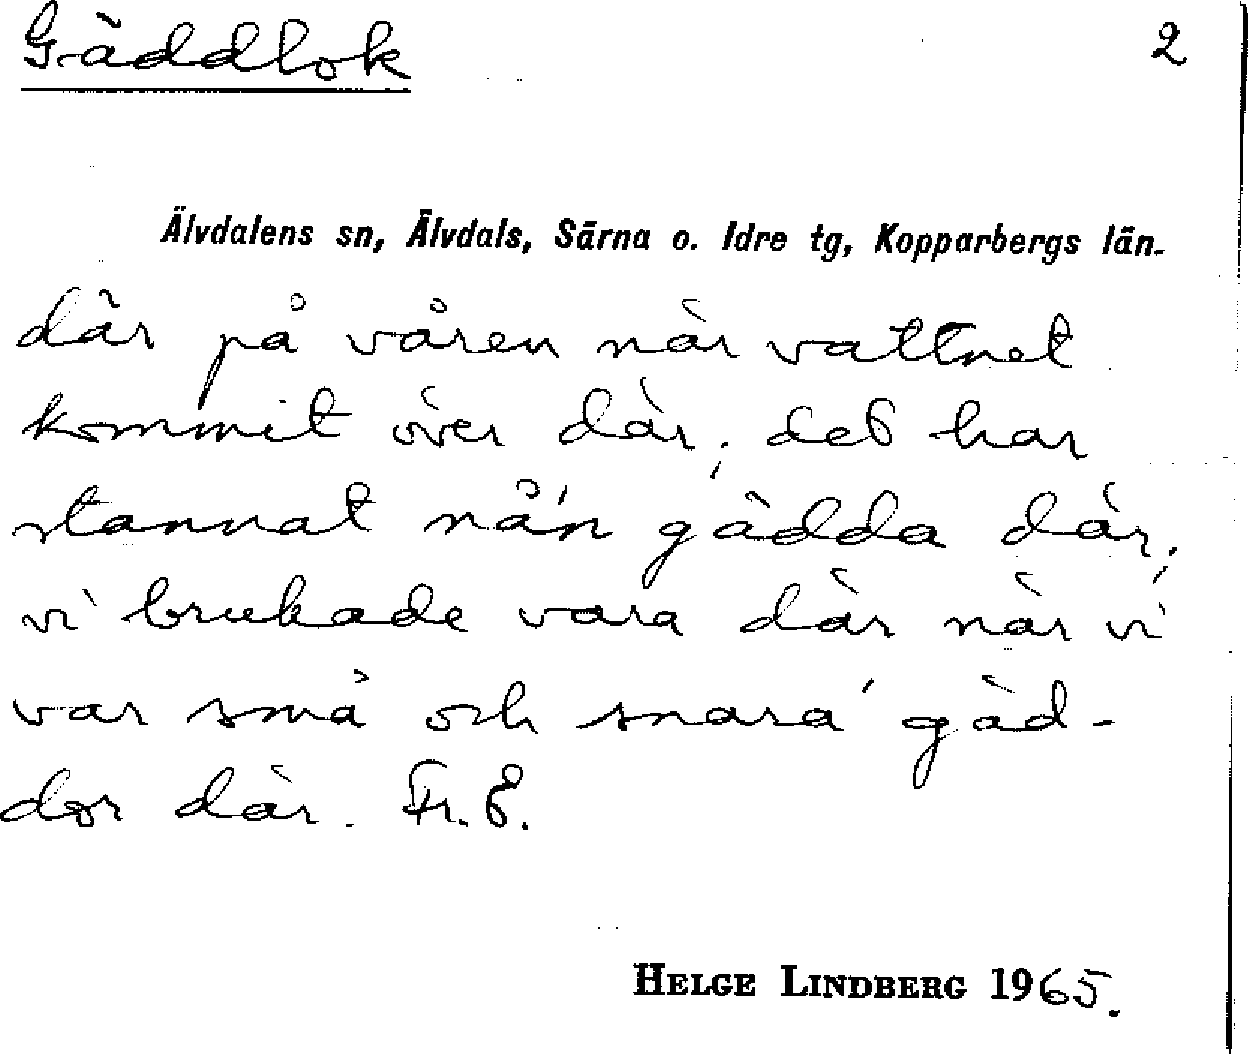 Gäddlok 2
Älvdalens sn, Älvdals, Särna o. Idre tg, Kopparbergs län.
där på våren när vattnet
kommit över där; det har
stannat nå'n gädda där;
vi brukade vara där när vi
var små och snara' gäd-
dor där. Fr. E.
HELGE LINDBERG 1965.